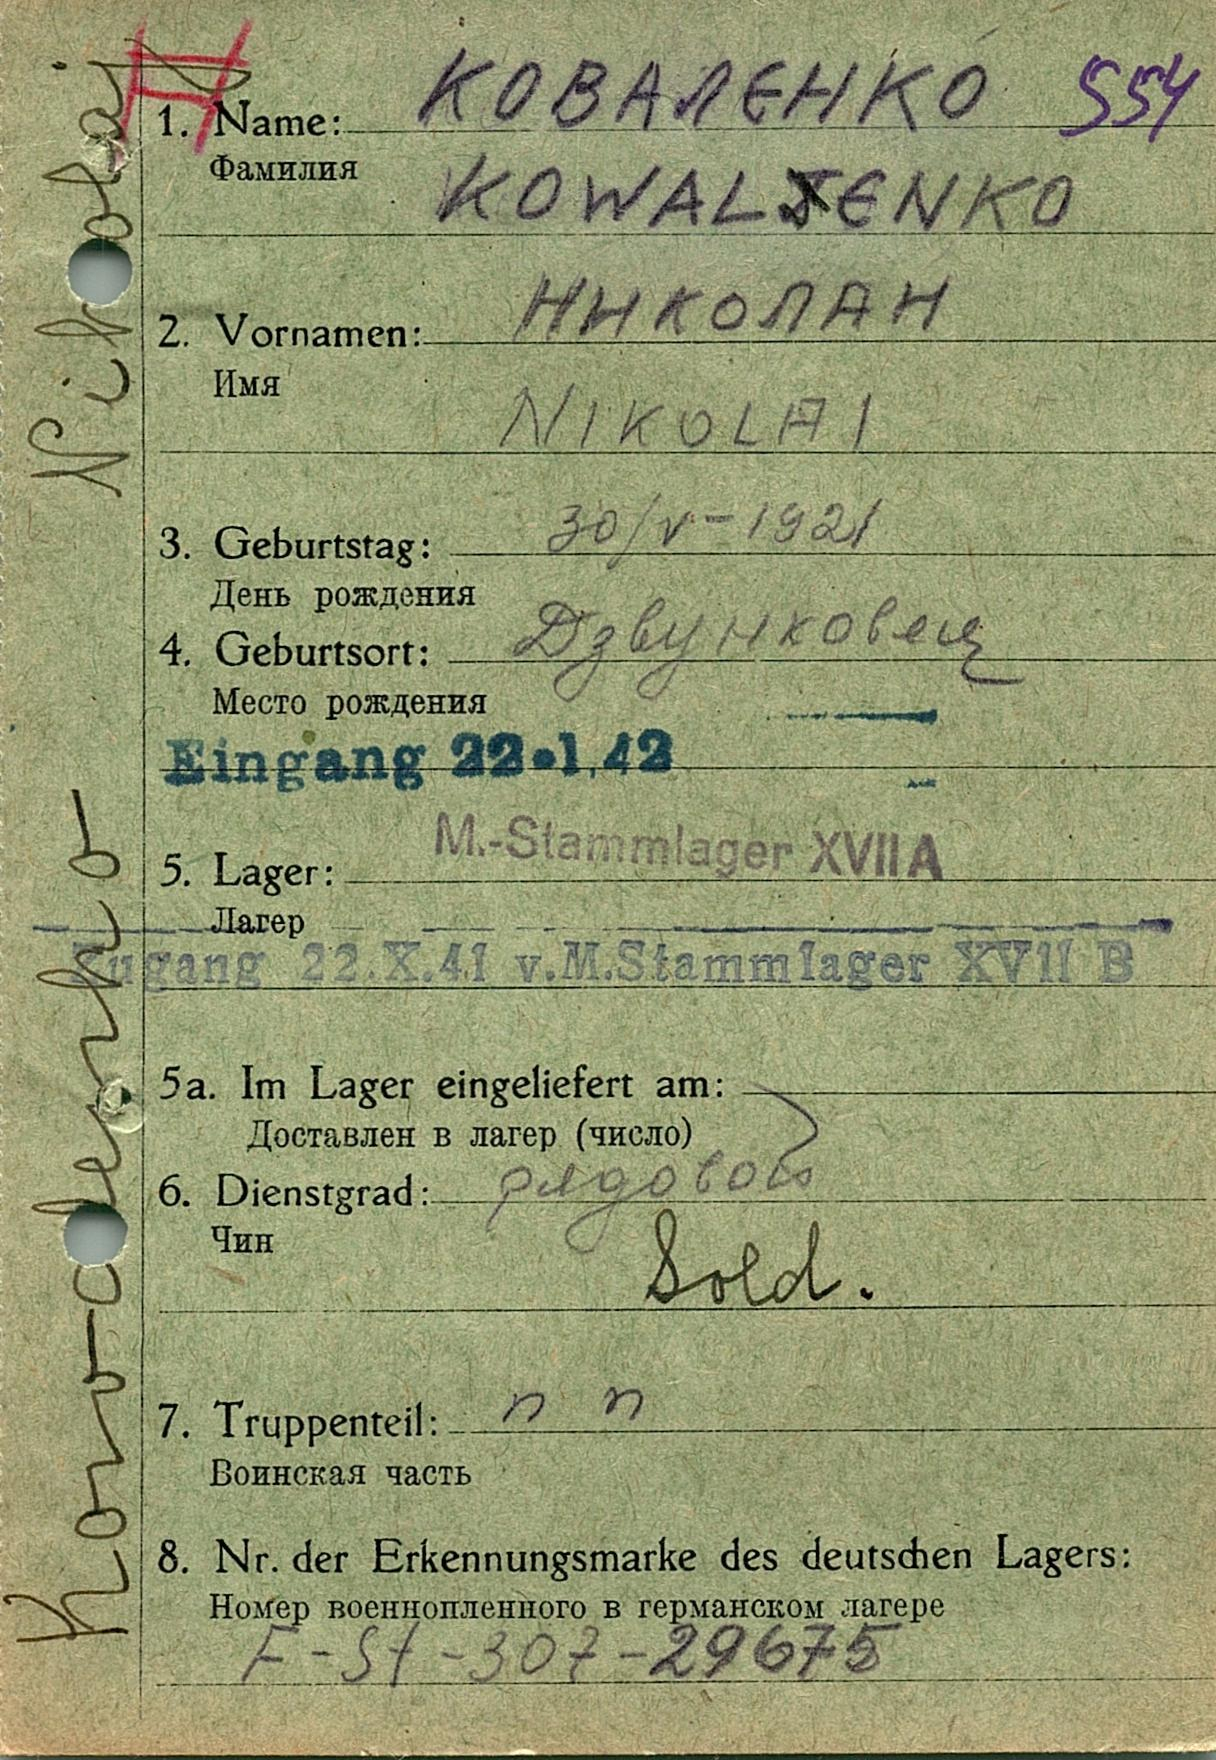 1. Name: КОВАЛЕНКО 554
Фамилия
KOWALENKO
2. Vornamen: НИКОЛАН
Имя
NIKOLAI
3. Geburtstag: 30/V-1921
День рождения
4. Geburtsort: Дзвунковец
Место рождения
Eingang 22.1.42
M.-Stammlager XVII A
5. Lager:
Лагер
Zugang 22.X.41 v.M.Stammlager XVII B
5a. Im Lager eingeliefert am:
Доставлен в лагер (число)
6. Dienstgrad: рядовой
Чин
Sold.
7. Truppenteil: п п
Воинская часть
8. Nr. der Erkennungsmarke des deutschen Lagers:
Номер военнопленного в германском лагере
F-St-307-29675
Kowalenko Nikolaj